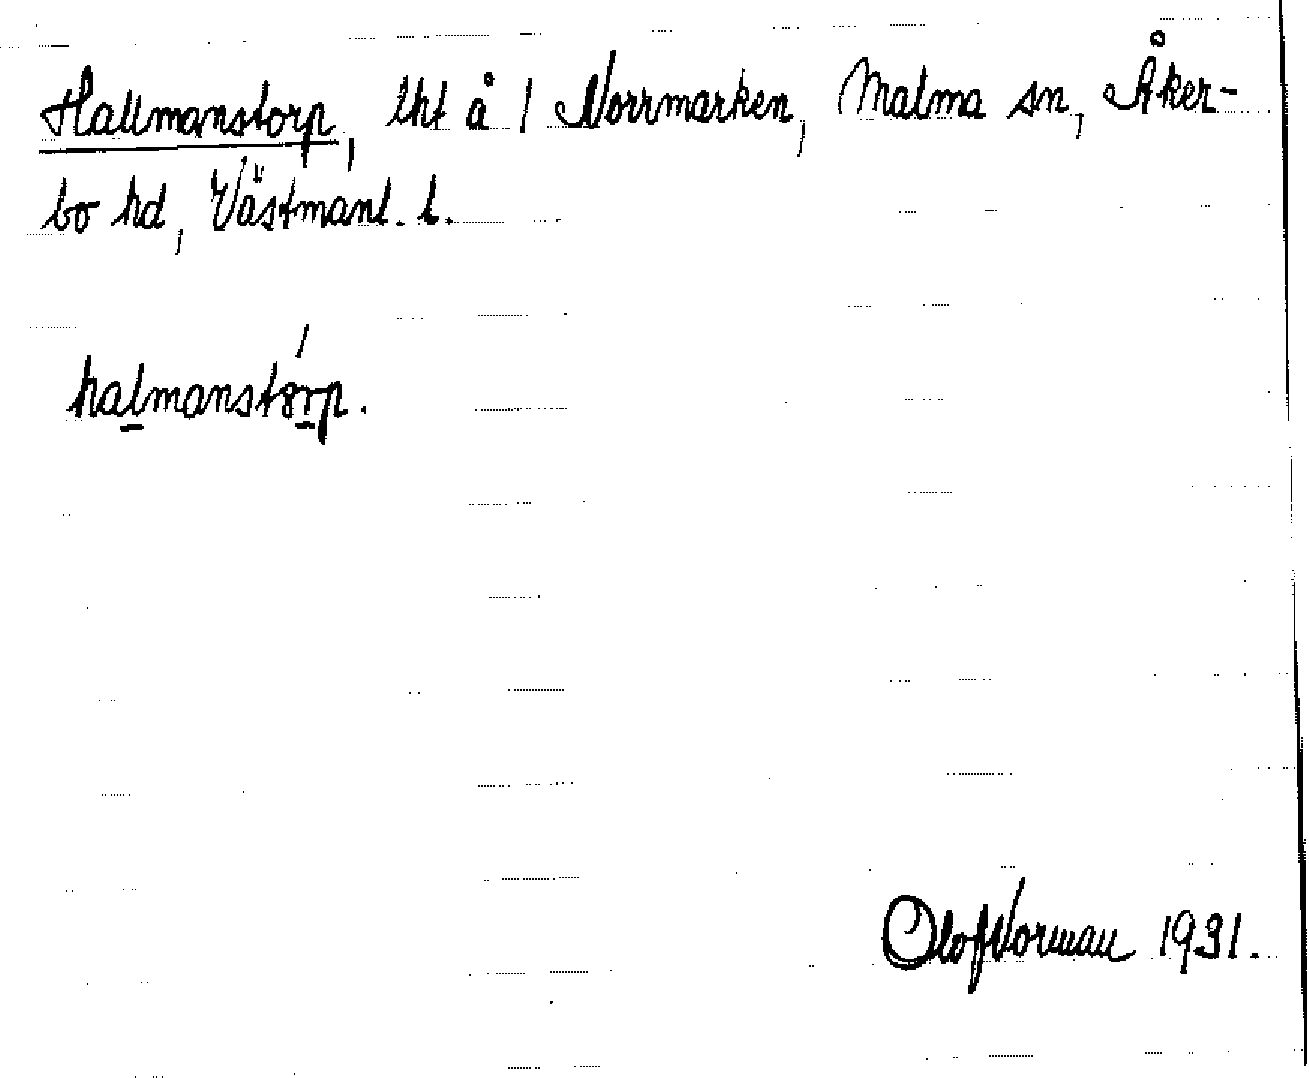 Hallmanstorp, lht å 1 Norrmarken, Malma sn, Åker-
bo hd, Västmanl. l.
halmanstorp.
Olof Norman 1931.